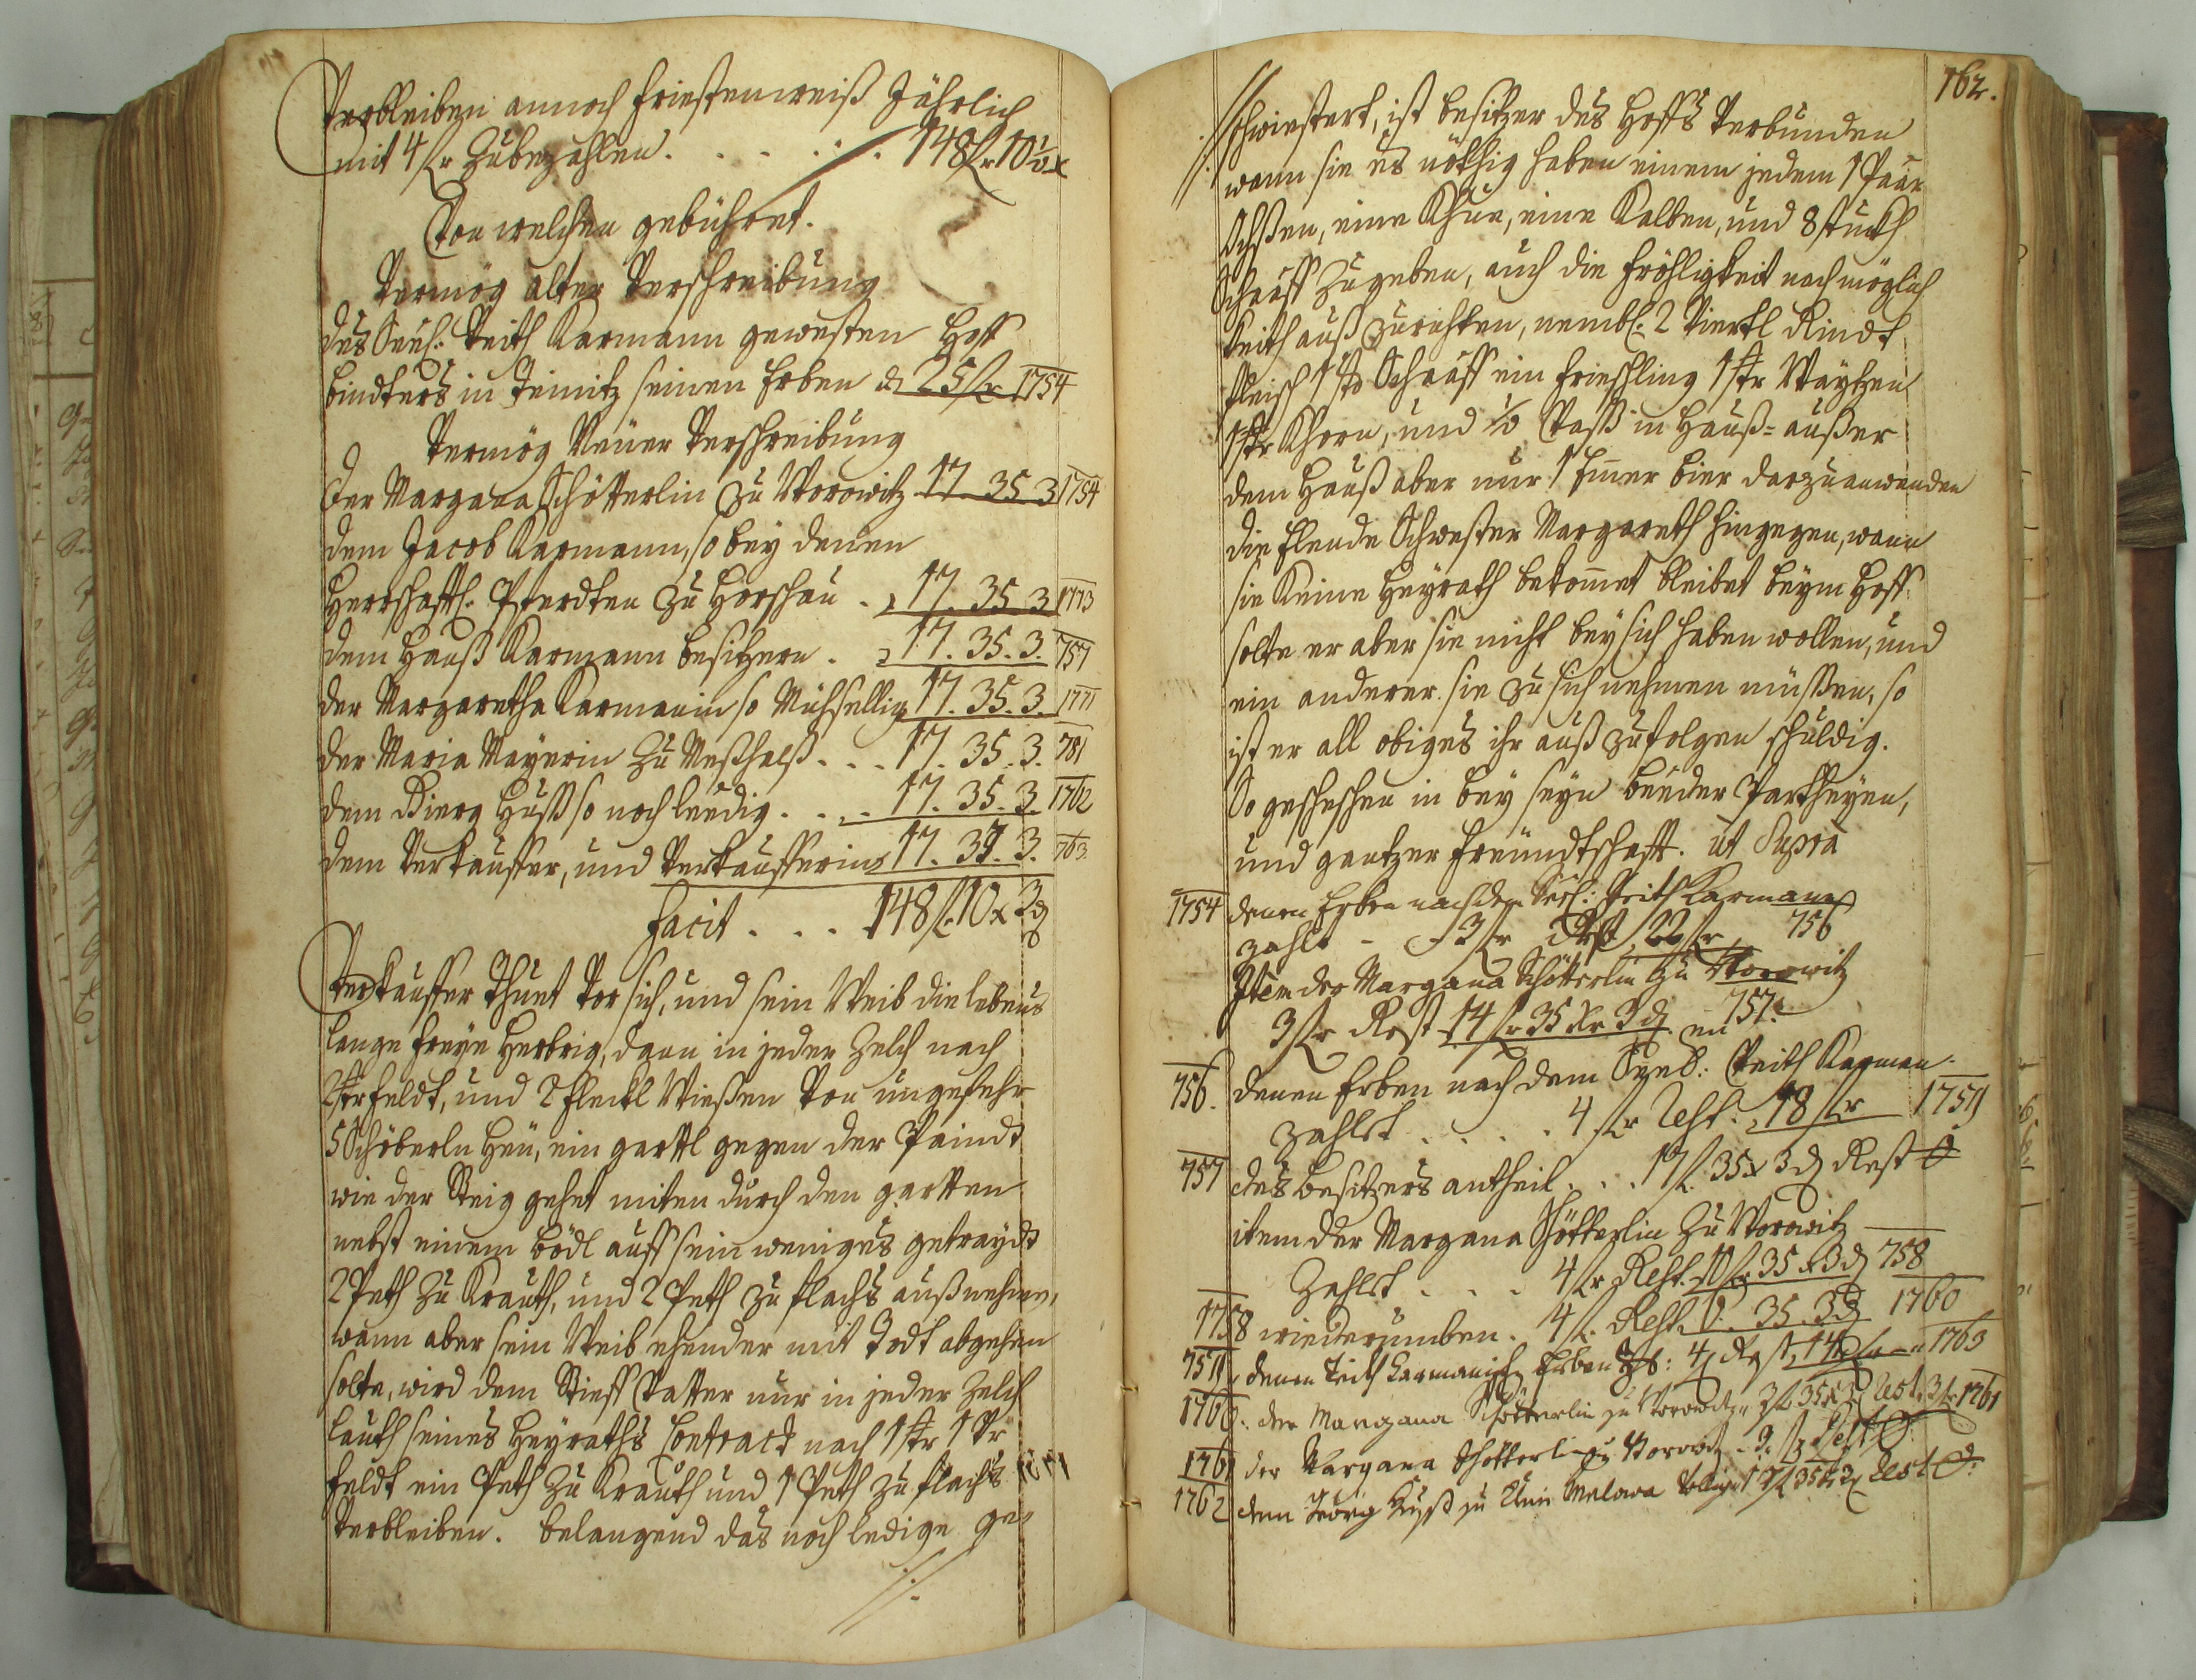 Verbleiben annoch Friestenweiß Jährlich
mit 4 fl Zubezahlen. . . . . . 148 fl 10 1/2 x
Von welchen gebühret.
Vermög alter Verschreibung
des Seel: Veith Karmann gewesten Hoff
bindters in Teinitz seinen Erben a 25 fl 1754
Vermög Neuer Verschreibung
Der Margana Schötterlin zu Worowitz 17 35 3 1754
dem Jacob Karmann, so bey denen
Herrschafftl. Pferdten zu Horschau . 17. 35 3 1773
dem Hauß Karmann besitzern . 17. 35. 3. 757
der Margaretha Karmanin so Mühsellig 17. 35. 3. 1771
der Maria Mayerin Zu Meßhalß . . . 17. 35. 3. 781
dem Görg Huß so noch leedig . . . 17. 35. 3. 1762
dem Verkauffer, und Verkaufferin 17. 35. 3. 763
Facit . . . 148 fl 10 x 3 d
Verkauffer Thuet Vor sich, und sein Weib die lebens
lange freye Herbrig, dann in jeder Zelch nach
2 Str feldt, und 2 fleckl Wießen Von ungefehr
5 Schöberln Heu, ein gartl gegen der Paindt
wie der Steig gehet miten durch den gartten
nebst einem bödl auff sein weniges getraydt
2 Peth Zu Krauth, und 2 Peth zu flachs außnehmen,
wann aber sein Weib ehender mit Todt abgehen
solte, wird dem Stieff Vatter nur in jeder Zelch
lauth seines Heyraths Contract nach 1 Str 1 Vr
feldt ein Peth Zu Krauth und 1 Peth zu flachs
Verbleiben. belangend das noch ledige ge-
./.
162.
schwistert, ist besitzer des Hoffs Verbunden
wann sie es nöthig haben einem jedem 1 Paar
Ochßen, eine Khue, eine Kalben, und 8 stuckh
Schaaff Zugeben, auch die Fröhligkeit nach möglich
Keith auß zurichten, nembl. 2 Viertl Rindt
fleisch 1 Stk Schaaff ein Frieschling 1 Str Waytzen
1 Str Khorn, und 1/2 Vaß in Hauß- außer
dem Hauß aber nur 1 Emer bier darzuanwenden
die Elende Schwester Margareth hingegen, wann
sie Keine Heyrath bekommet bleibet beym Hoff
solte er aber sie nicht bey sich haben wollen, und
ein anderer sie zu sich nehmen müssen, so
ist er all obiges ihr auß zufolgen schuldig.
So geschehen in bey seyn beeder Partheyen,
und gantzer Freundtschafft. ut Supra
1754 denen Erben nach dem Seel: Veith Karmann
zahlt - 3 fl Rest 22 fl 756
Item der Margana Schötterlin zu Worowitz
3 fl Rest 14 fl 35 Xr 3 d 757.
756. denen Erben nach dem Seel: Veith Karman
zahlt . . . . 4 fl Rest. 18 fl 1759
757 des besitzers antheil . . . 17 fl 35 x 3 d Rest 0
item der Margana Schötterlin Zu Worowitz
Zahlt . . . 4 fl Rest. 10 fl 35 x 3 d 758
1758 wiederumben . 4 fl. Rest 6. 35. 3 d 1760
759 denen Veith Karmanisch Erben : 4 Rest 14 fl 1763
1760. der Margana Schötterlin zu Worowitz 3 fl 35 x 3 Rest 3 fl 1761
1761 der Margana Schötterlin zu Worowitz 3 fl Rest 0.
1762 dem Georg Huß zu Klein Malowa 17 fl 35 x 3 Rest 0.